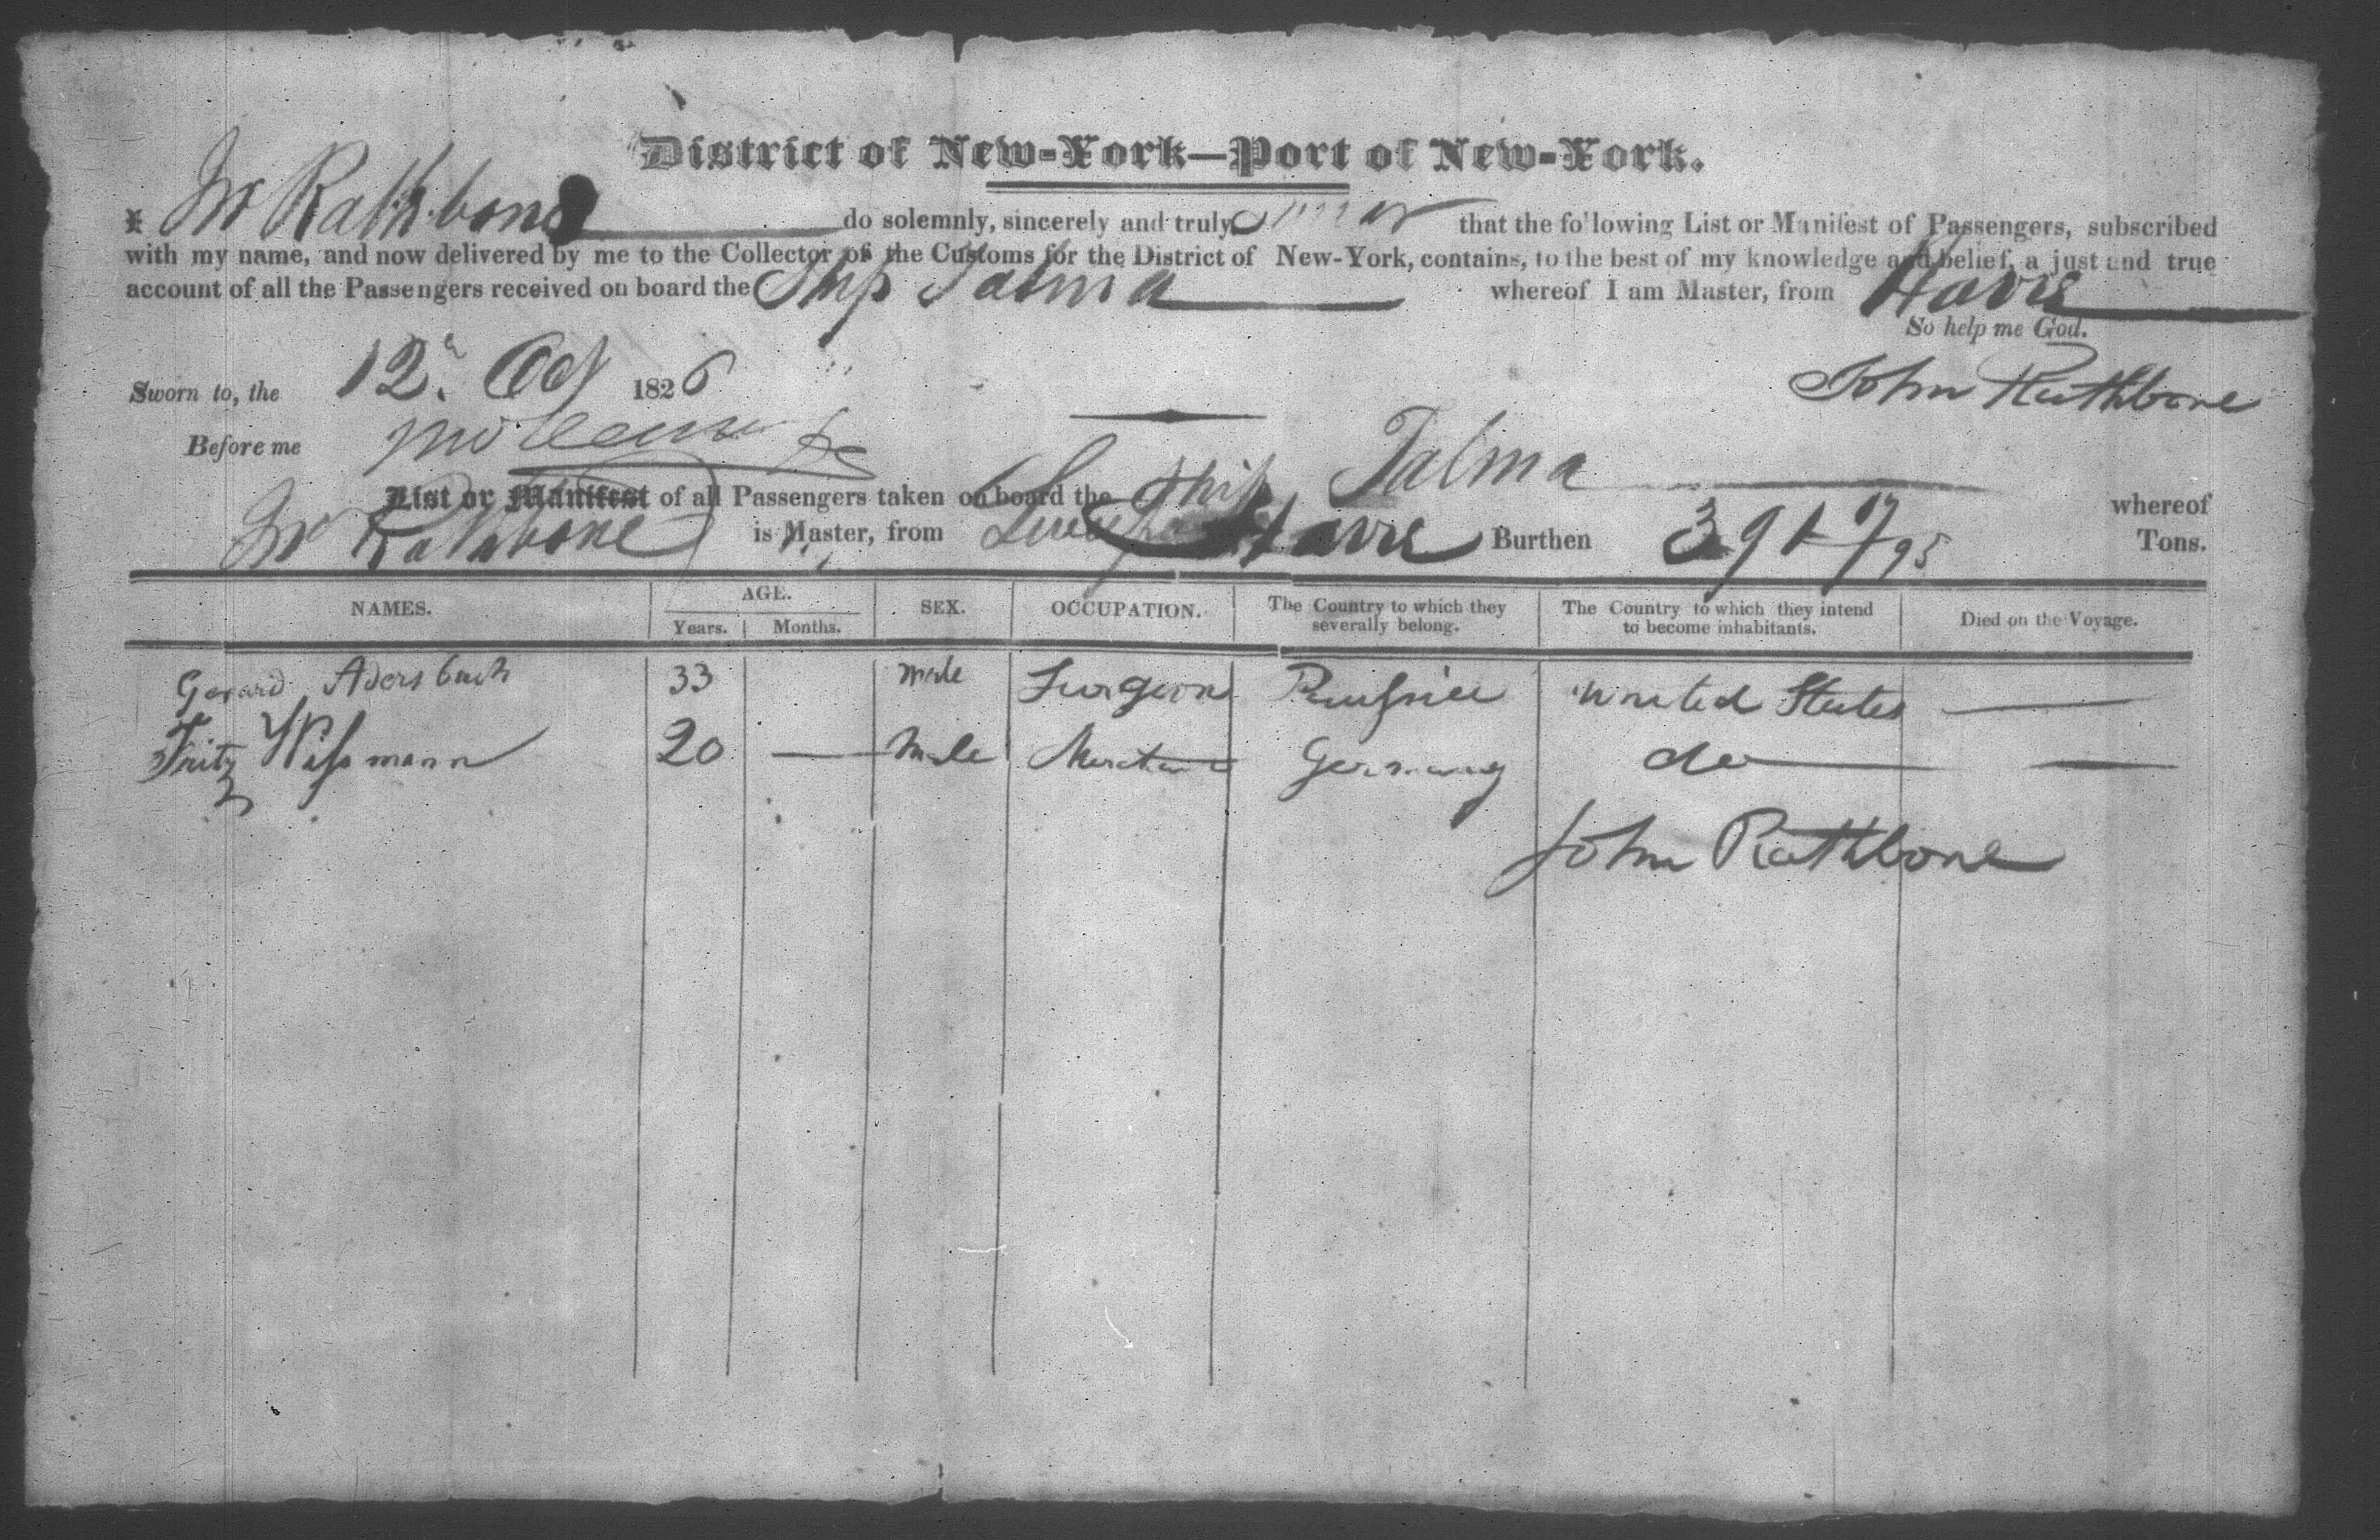 District of New-York—Port of New-York.
I Jno Rathbone do solemnly, sincerely and truly swear that the following List or Manifest of Passengers, subscribed
with my name, and now delivered by me to the Collector of the Customs for the District of New-York, contains, to the best of my knowledge and belief, a just and true
account of all the Passengers received on board the Ship Talma whereof I am Master, from Havre
So help me God.
Sworn to, the 12 Oct 1826
John Rathbone
Before me
List or Manifest of all Passengers taken on board the Ship Talma whereof
Jno Rathbone is Master, from Havre Burthen 391 17/95 Tons.
NAMES. AGE. SEX. OCCUPATION. The Country to which they severally belong. The Country to which they intend to become inhabitants. Died on the Voyage.
Years. Months.
Gerard Adersbach 33 male Surgeon United States —
Fritz Wissmann 20 — Male Merchant Germany do —
John Rathbone